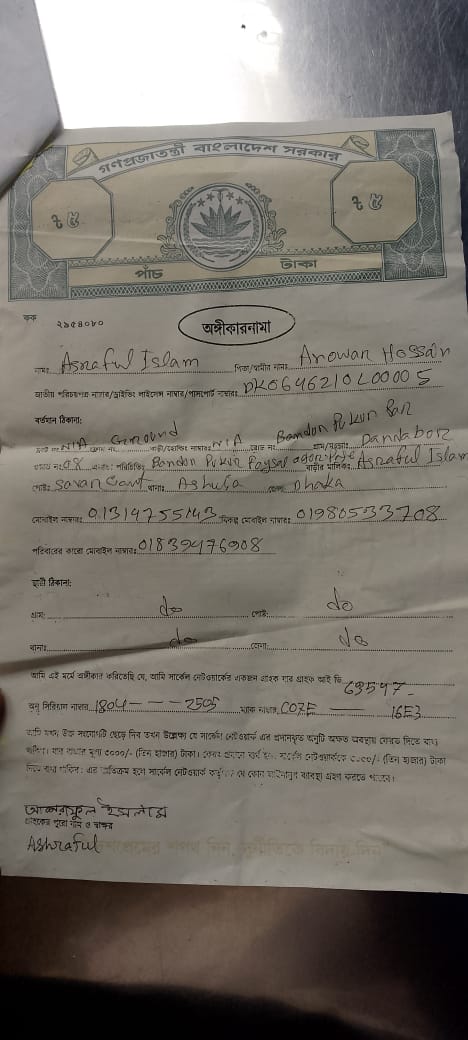 গণপ্রজাতন্ত্রী বাংলাদেশ সরকার
৳ ৫ ৳ ৫
পাঁচ টাকা
কক
২৯৫৪০৮০
অঙ্গীকারনামা
নামঃ Asraful Islam পিতা/স্বামীর নামঃ Anowar Hossan
জাতীয় পরিচয়পত্র নাম্বার/ড্রাইভিং লাইসেন্স নাম্বার/পাসপোর্ট নাম্বারঃ DK0646210L00005
বর্তমান ঠিকানা:
N/A Ground বাড়ী/হোল্ডিং নাম্বারঃ N/A রোড নং Bandon Pukur Par গ্রাম/মহল্লাঃ
08 পরিচিতিঃ Bandon Pukur বাড়ীর মালিকঃ Asraful Islam
পোষ্টঃ Savar Cant থানাঃ Ashulia জেলাঃ Dhaka
মোবাইল নাম্বারঃ 01314755143 বিকল্প মোবাইল নাম্বারঃ 01980533708
পরিবারের কারো মোবাইল নাম্বারঃ 01839476908
স্থায়ী ঠিকানা:
গ্রামঃ do পোষ্ট: do
থানাঃ do জেলা: do
আমি এই মর্মে অঙ্গীকার করিতেছি যে, আমি সার্কেল নেটওয়ার্কের একজন গ্রাহক যার গ্রাহক আই ডি 63597-
অনু সিরিয়াল নাম্বার 1804---2505 ম্যাক নাম্বার C07E — 16E3
আমি যখন উক্ত সংযোগটি ছেড়ে দিব তখন উল্লেক্ষ্য যে সার্কেল নেটওয়ার্ক এর প্রদানকৃত অনুটি অক্ষত অবস্থায় ফেরত দিতে বাধ্য
থাকিব। যার বাজার মূল্য ৩০০০/- (তিন হাজার) টাকা। ফেরত প্রদানে ব্যর্থ হলে সার্কেল নেটওয়ার্ককে ৩০০০/- (তিন হাজার) টাকা
দিতে বাধ্য থাকিব। এর ব্যতিক্রম হলে সার্কেল নেটওয়ার্ক কর্তৃপক্ষ যে কোন আইনানুগ ব্যবস্থা গ্রহণ করতে পারবে।
আশরাফুল ইসলাম
গ্রাহকের পুরো নাম ও স্বাক্ষর
Ashraful
দেশপ্রেমের শপথ নিন, দুর্নীতিকে বিদায় দিন"